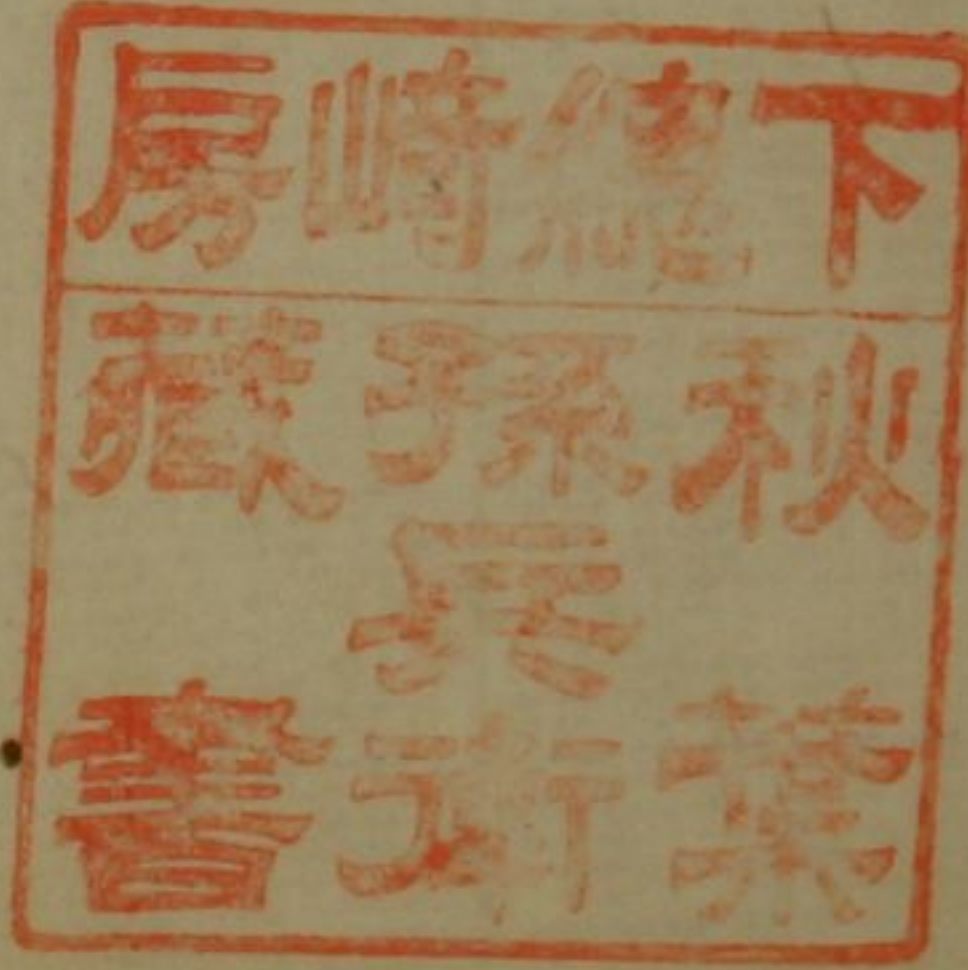 下總崎房
秋葉
孫兵衛
藏書